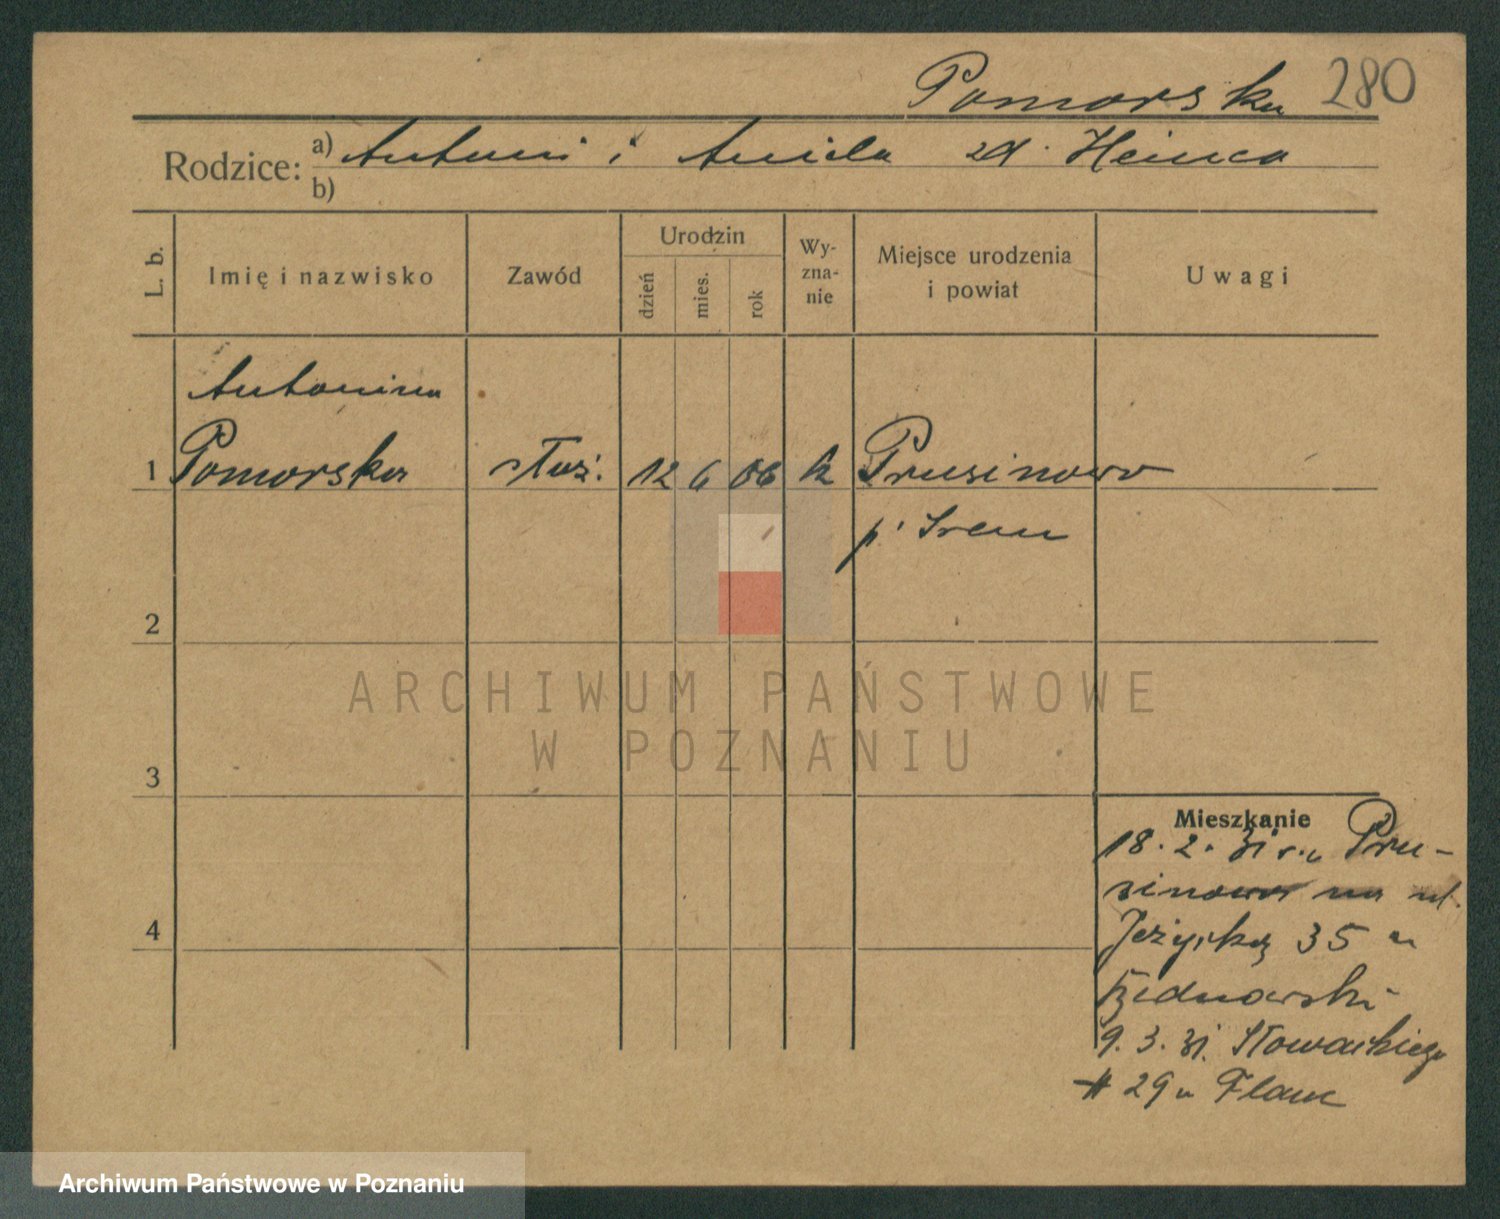 Pomorska 280
Rodzice: a) Antoni i Aniela zd. Heinca
b)
L. b. Imię i nazwisko Zawód Urodzin dzień mies. rok Wyznanie Miejsce urodzenia i powiat Uwagi
Antonina
1 Pomorska służ. 12 6 06 k Prusinowo
p. Srem
2
ARCHIWUM PAŃSTWOWE
W POZNANIU
3
Mieszkanie
18. 2. 31 r. z Pru-
sinowo na ul.
Jeżycką 35 u
Bednarski
9. 3. 31. Słowackiego
29 u Flanc
4
Archiwum Państwowe w Poznaniu